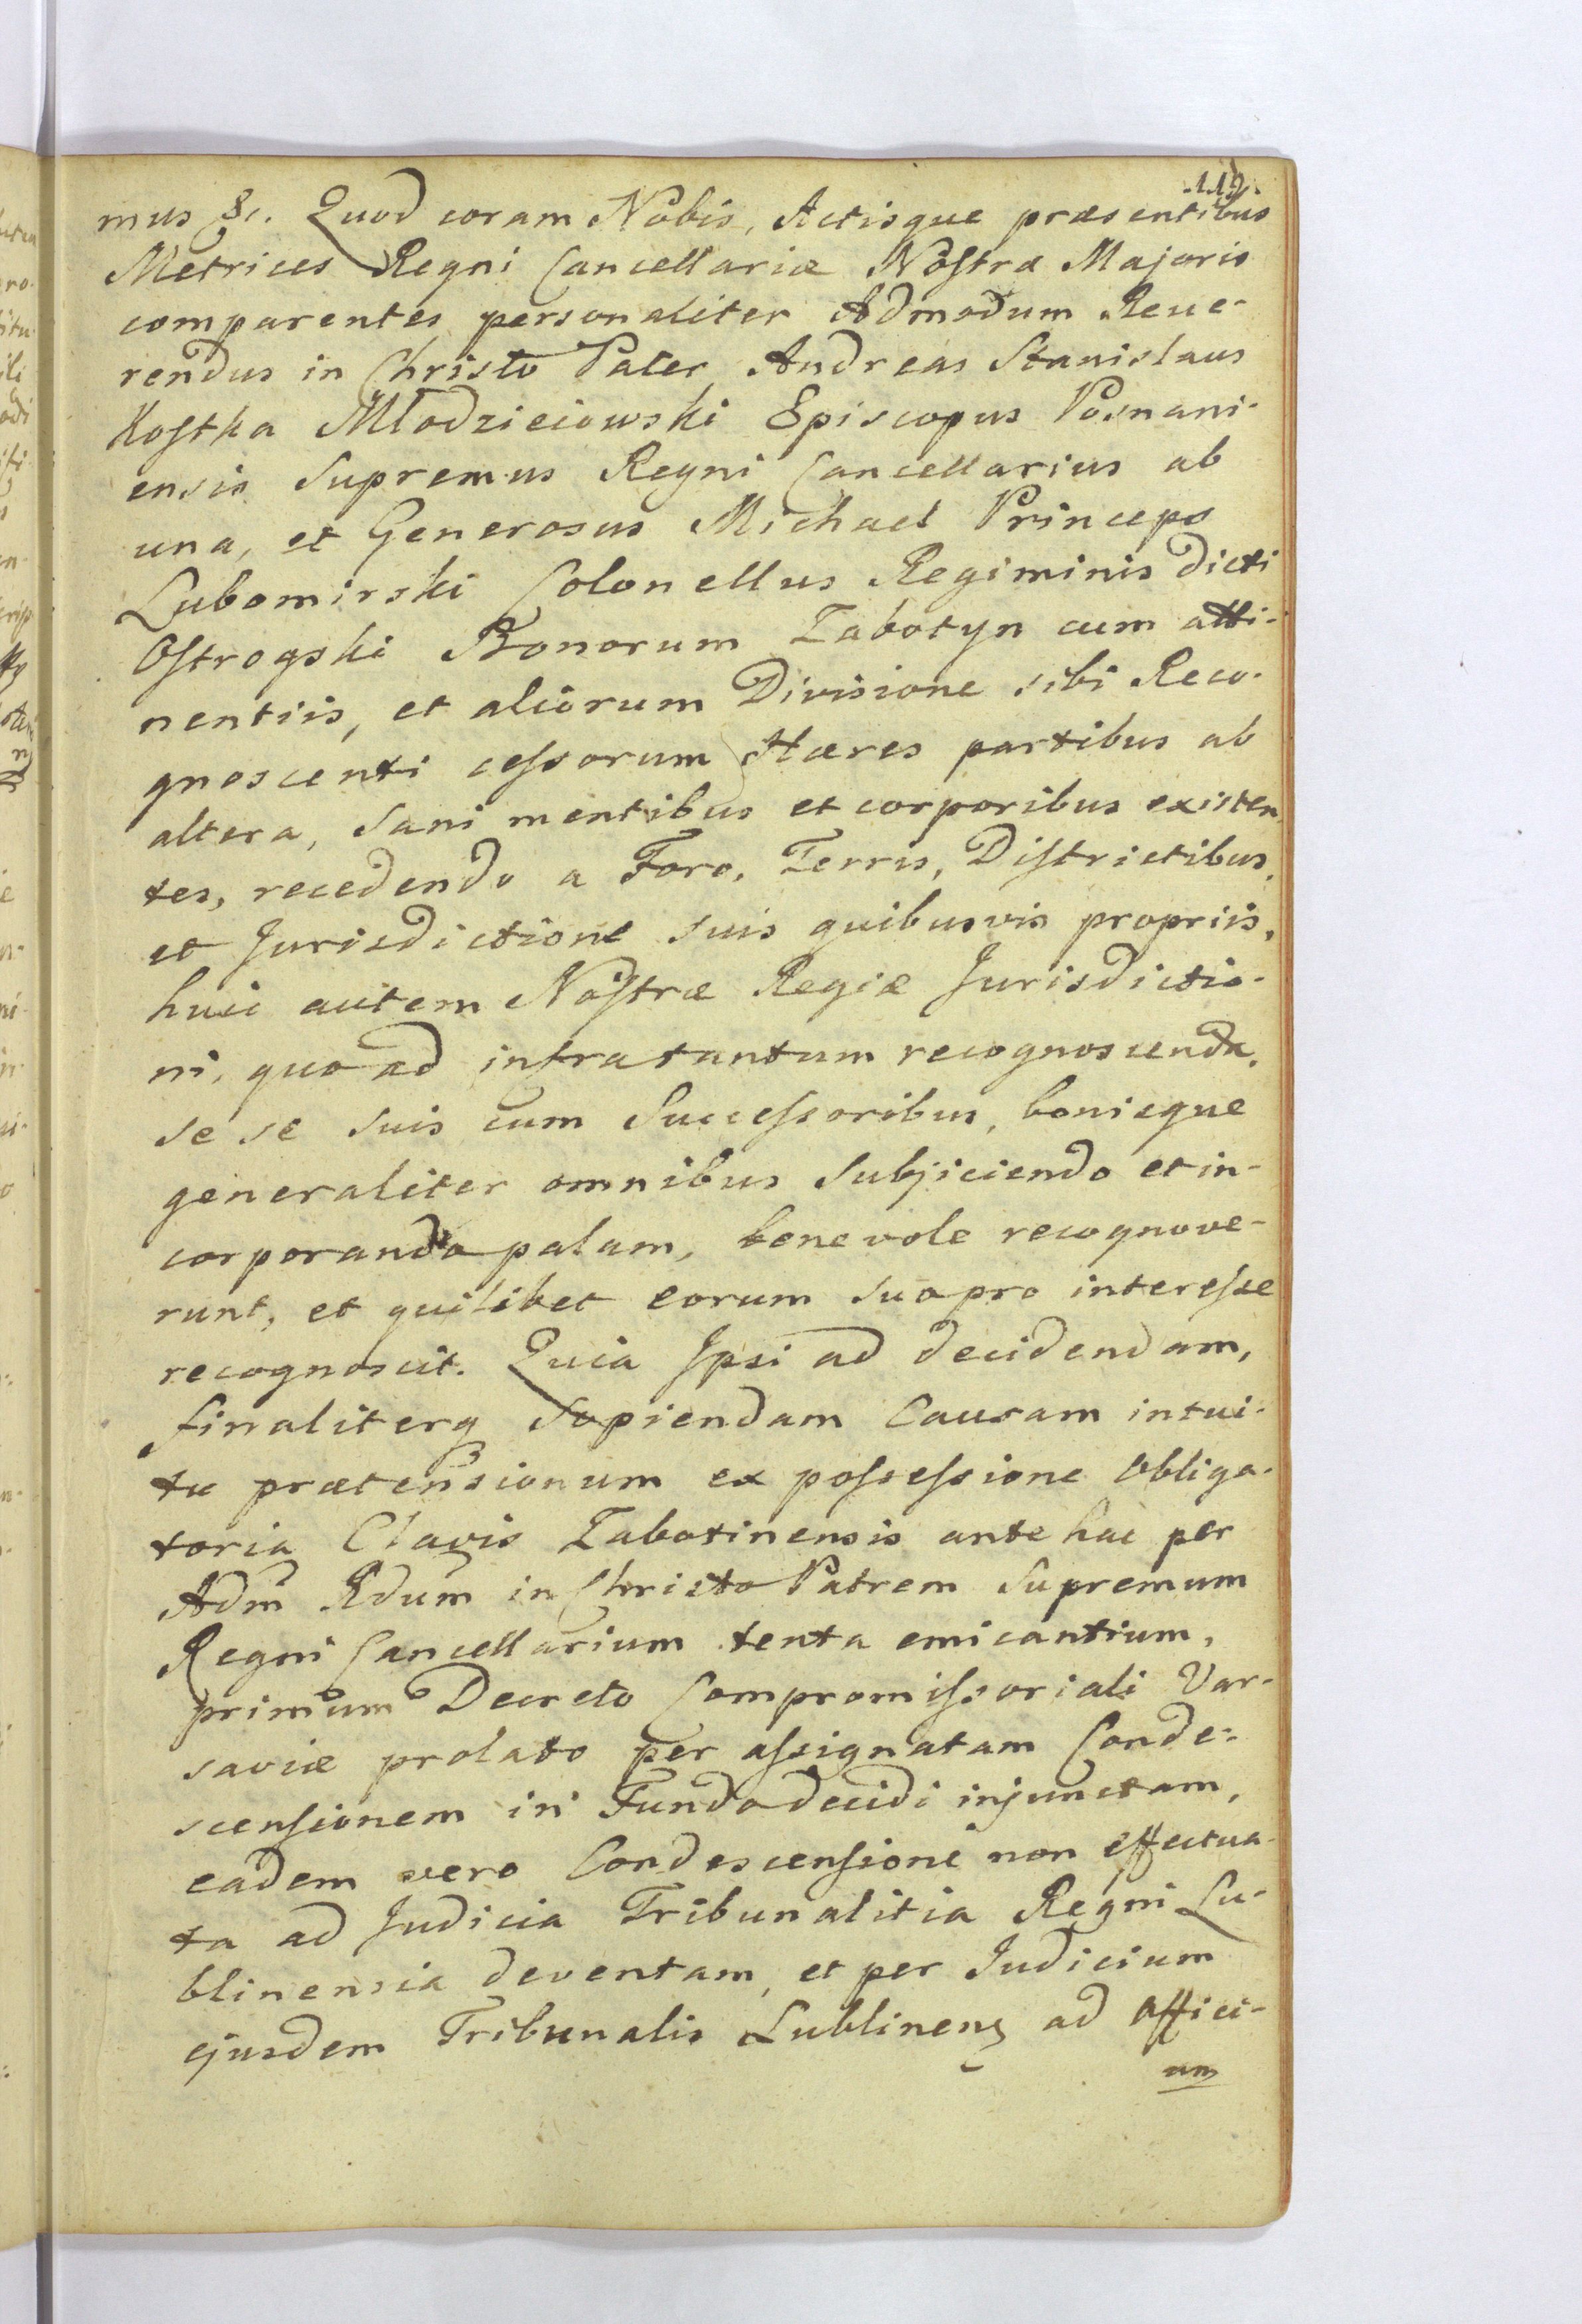 119.
mus &c. Quod coram Nobis, Actisque præsentibus
Metrices Regni Cancellariæ Nostræ Majoris
comparentes personaliter Admodum Reve-
rendus in Christo Pater Andreas Stanislaus
Kostka Młodzieiowski Episcopus Posnani-
ensis Supremus Regni Cancellarius ab
una, et Generosus Michael Princeps
Lubomirski Colonellus Regiminis dicti
Ostrogski Bonorum Tabotyn cum atti-
nentiis, et aliorum Divisione sibi Reco-
gnoscenti cessorum Hæres partibus ab
altera, Sani mentibus et corporibus existen
tes, recedendo a Foro, Terris, Districtibus,
et Jurisdictione suis quibusvis propriis,
huic autem Nostræ Regiæ Jurisdictio-
ni, quo ad infratantum recognoscenda,
se se suis cum Successoribus, bonisque
generaliter omnibus Subjiciendo et in-
corporando palam, benevole recognove-
runt, et quilibet eorum suo pro interesse
recognoscit. Quia Ipsi ad decidendam,
finaliterq sopiendam Causam intui-
tu prætensionum ex possessione Obliga-
toria Clavis Tabotinensis ante hac per
Adm̃ Rdum in Christo Patrem Supremum
Regni Cancellarium tenta emicantium,
primum Decreto Compromissoriali Var-
saviæ prolato per assignatam Conde-
scensionem in Fundo decidi injunctam,
eadem vero Condescensione non effectua-
ta ad Judicia Tribunalitia Regni Lu-
blinensia deventam, et per Judicium
ejusdem Tribunalis Lublinens ad Offici-
um